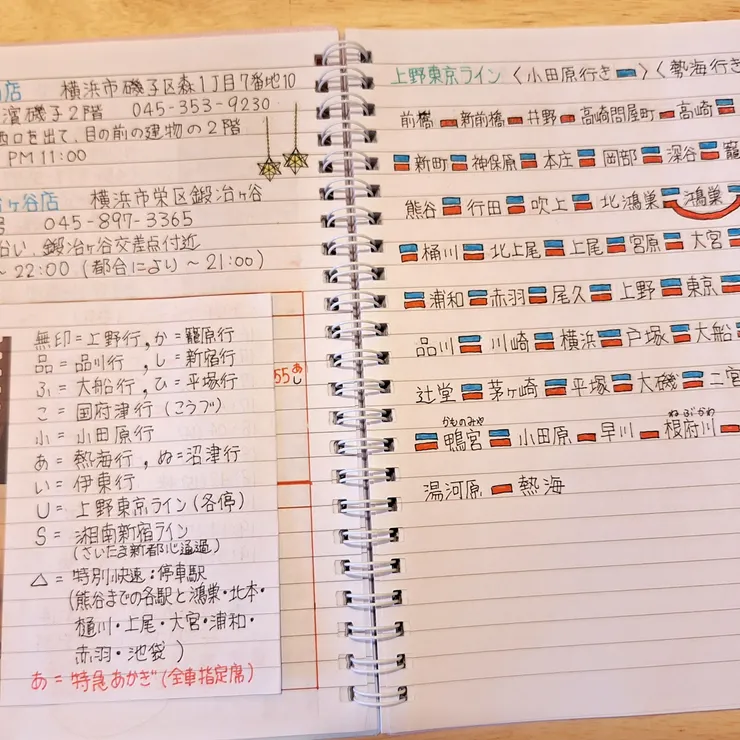 店 横浜市磯子区森1丁目7番地10
濱磯子2階 045-353-9230
西口を出て、目の前の建物の2階
PM11:00
ヶ谷店 横浜市栄区鍛冶ヶ谷
号 045-897-3365
沿い、鍛冶ヶ谷交差点付近
~22:00(都合により~21:00)
無印=上野行,か=籠原行
品=品川行,し=新宿行
ふ=大船行,ひ=平塚行
こ=国府津行(こうづ)
小=小田原行
あ=熱海行,ぬ=沼津行
い=伊東行
U=上野東京ライン(各停)
S=湘南新宿ライン
(さいたま新都心通過)
△=特別快速:停車駅
(熊谷までの各駅と鴻巣・北本・
桶川・上尾・大宮・浦和・
赤羽・池袋)
あ=特急あかぎ(全車指定席)
55 あ し
上野東京ライン〈小田原行き 〉〈熱海行き
前橋 新前橋 井野 高崎問屋町 高崎
新町 神保原 本庄 岡部 深谷 籠
熊谷 行田 吹上 北鴻巣 鴻巣
桶川 北上尾 上尾 宮原 大宮
浦和 赤羽 尾久 上野 東京
品川 川崎 横浜 戸塚 大船
辻堂 茅ヶ崎 平塚 大磯 二宮
かものみや ねぶかわ
鴨宮 小田原 早川 根府川
湯河原 熱海